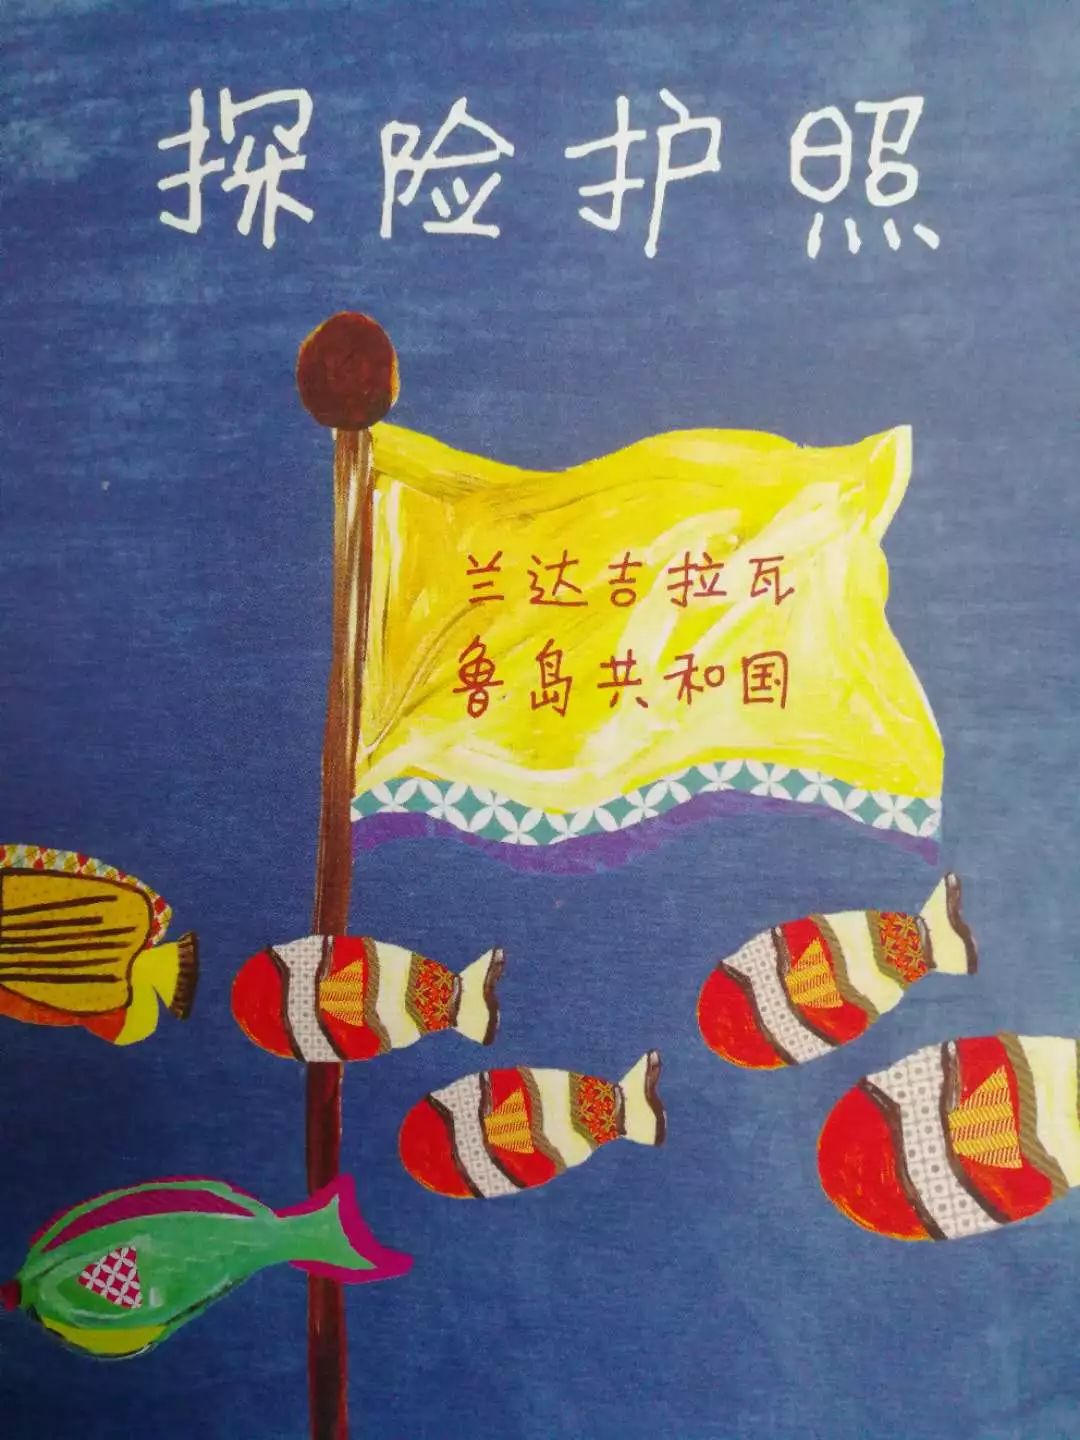 探险护照
兰达吉拉瓦
鲁岛共和国